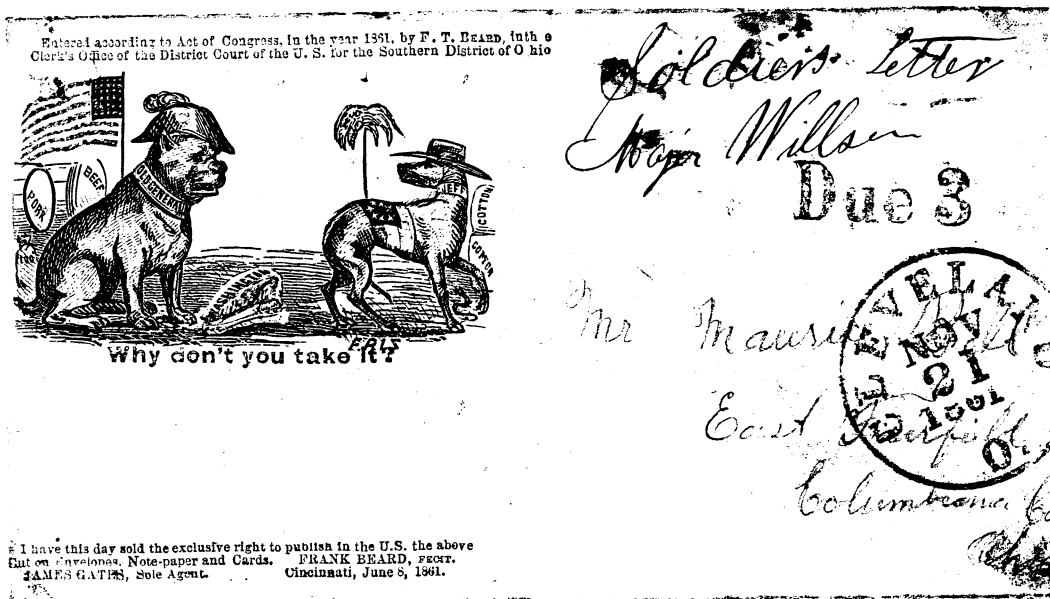 Entered according to Act of Congress, in the year 1861, by F. T. BEARD, in th e
Clerk's Office of the District Court of the U. S. for the Southern District of O hio
BEEF
PORK
OLD GENERAL
JEFF
COTTON
COTTON
Why don't you take it?
I have this day sold the exclusive right to publish in the U.S. the above
Cut on Envelopes, Note-paper and Cards. FRANK BEARD, FECIT.
JAMES GATES, Sole Agent. Cincinnati, June 8, 1861.
Soldiers Letter
Major Willson
Due 3
CLEVELAND O.
NOV
21
1861
Mr Maurice
East Fairfield
Columbiana Co